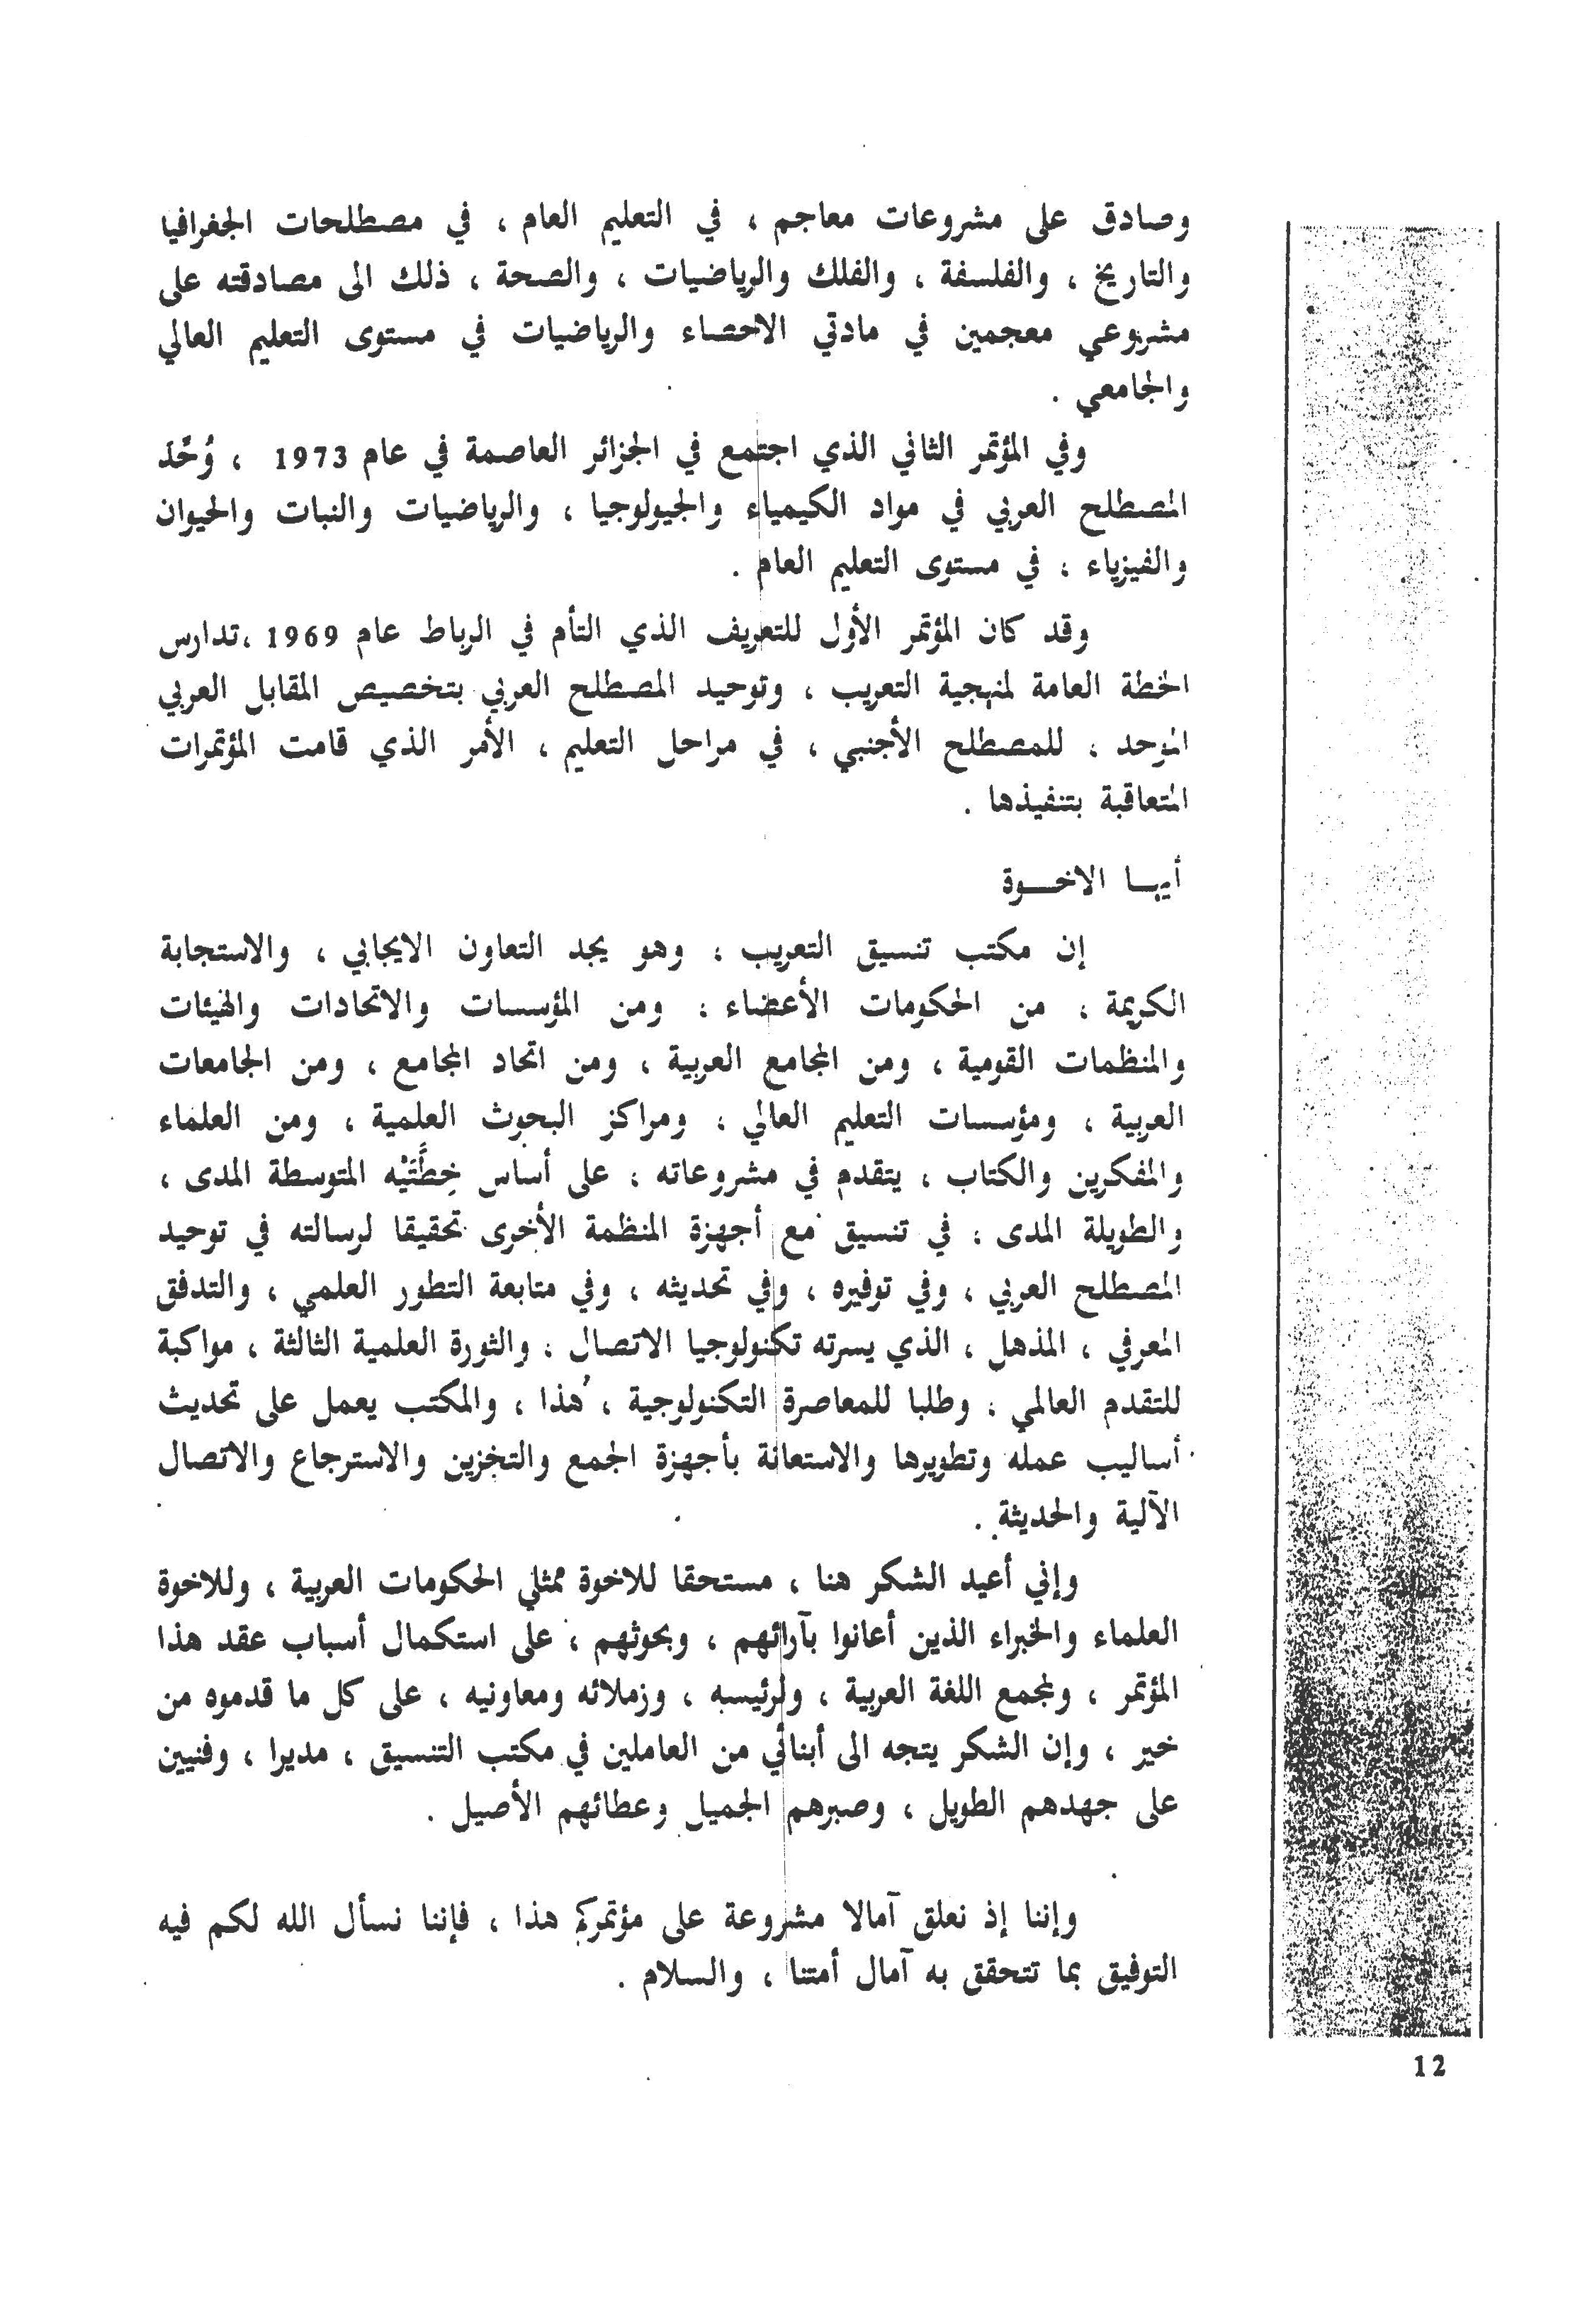 وصادق على مشروعات معاجم ، في التعليم العام ، في مصطلحات الجغرافيا
والتاريخ ، والفلسفة ، والفلك والرياضيات ، والصحة ، ذلك الى مصادقته على
مشروعي معجمين في مادتي الاحصاء والرياضيات في مستوى التعليم العالي
والجامعي .
وفي المؤتمر الثاني الذي اجتمع في الجزائر العاصمة في عام 1973 ، وُحِّدَ
المصطلح العربي في مواد الكيمياء والجيولوجيا ، والرياضيات والنبات والحيوان
والفيزياء ، في مستوى التعليم العام .
وقد كان المؤتمر الأول للتعريف الذي التأم في الرباط عام 1969 ،تدارس
الخطة العامة لمنهجية التعريب ، وتوحيد المصطلح العربي بتخصيص المقابل العربي
الموحد ، للمصطلح الأجنبي ، في مراحل التعليم ، الأمر الذي قامت المؤتمرات
المتعاقبة بتنفيذها .
أيها الاخـوة
إن مكتب تنسيق التعريب ، وهو يجد التعاون الايجابي ، والاستجابة
الكريمة ، من الحكومات الأعضاء ، ومن المؤسسات والاتحادات والهيئات
والمنظمات القومية ، ومن المجامع العربية ، ومن اتحاد المجامع ، ومن الجامعات
العربية ، ومؤسسات التعليم العالي ، ومراكز البحوث العلمية ، ومن العلماء
والمفكرين والكتاب ، يتقدم في مشروعاته ، على أساس خِطَّتَيْه المتوسطة المدى ،
والطويلة المدى ، في تنسيق مع أجهزة المنظمة الأخرى تحقيقا لرسالته في توحيد
المصطلح العربي ، وفي توفيره ، وفي تحديثه ، وفي متابعة التطور العلمي ، والتدفق
المعرفي ، المذهل ، الذي يسرته تكنولوجيا الاتصال ، والثورة العلمية الثالثة ، مواكبة
للتقدم العالمي ، وطلبا للمعاصرة التكنولوجية ، هذا ، والمكتب يعمل على تحديث
أساليب عمله وتطويرها والاستعانة بأجهزة الجمع والتخزين والاسترجاع والاتصال
الآلية والحديثة .
وإني أعيد الشكر هنا ، مستحقا للاخوة ممثلي الحكومات العربية ، وللاخوة
العلماء والخبراء الذين أعانوا بآرائهم ، وبحوثهم ، على استكمال أسباب عقد هذا
المؤتمر ، ولمجمع اللغة العربية ، ولرئيسه ، وزملائه ومعاونيه ، على كل ما قدموه من
خير ، وإن الشكر يتجه الى أبنائي من العاملين في مكتب التنسيق ، مديرا ، وفنيين
على جهدهم الطويل ، وصبرهم الجميل وعطائهم الأصيل .
وإننا إذ نعلق آمالا مشروعة على مؤتمركم هذا ، فإننا نسأل الله لكم فيه
التوفيق بما تتحقق به آمال أمتنا ، والسلام .
12